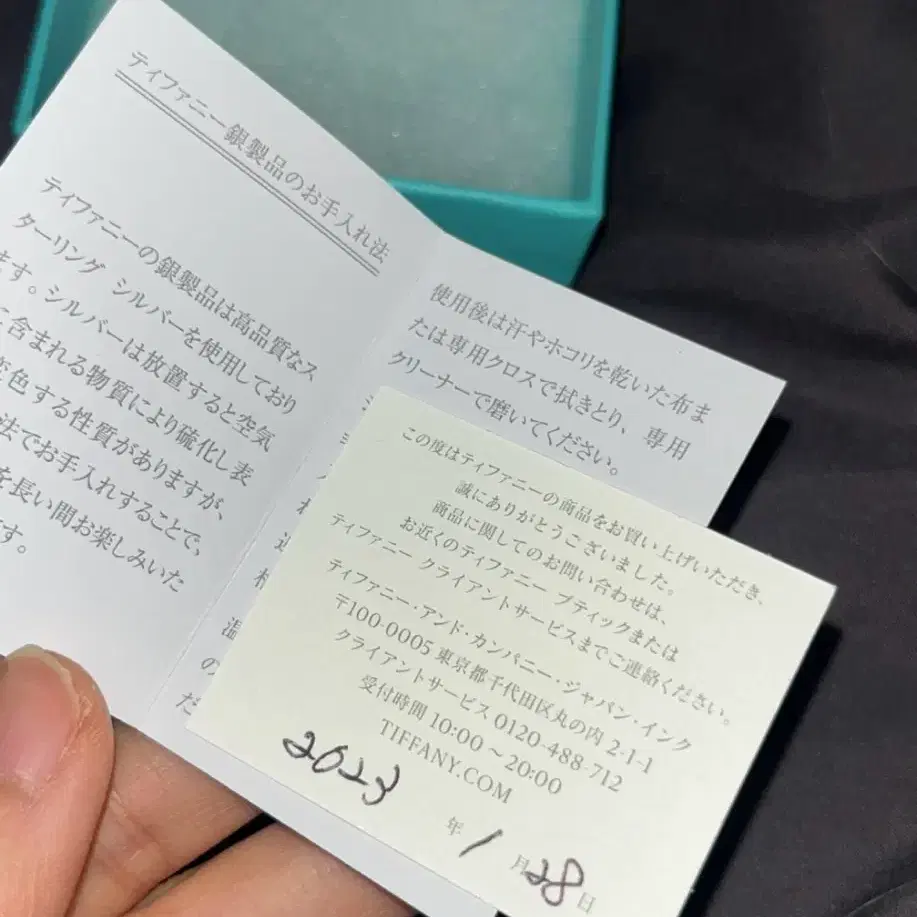 ティファニー銀製品のお手入れ法
ティファニーの銀製品は高品質なス
ターリング シルバーを使用しており
ます。シルバーは放置すると空気
に含まれる物質により硫化し表
変色する性質がありますが、
法でお手入れすることで、
を長い間お楽しみいた
す。
使用後は汗やホコリを乾いた布ま
たは専用クロスで拭きとり、専用
クリーナーで磨いてください。
温
の
だ
この度はティファニーの商品をお買い上げいただき、
誠にありがとうございました。
商品に関してのお問い合わせは、
お近くのティファニー ブティックまたは
ティファニー クライアントサービスまでご連絡ください。
ティファニー・アンド・カンパニー・ジャパン・インク
〒100-0005 東京都千代田区丸の内 2-1-1
クライアントサービス 0120-488-712
受付時間 10:00～20:00
TIFFANY.COM
2023 年 1 月 28 日